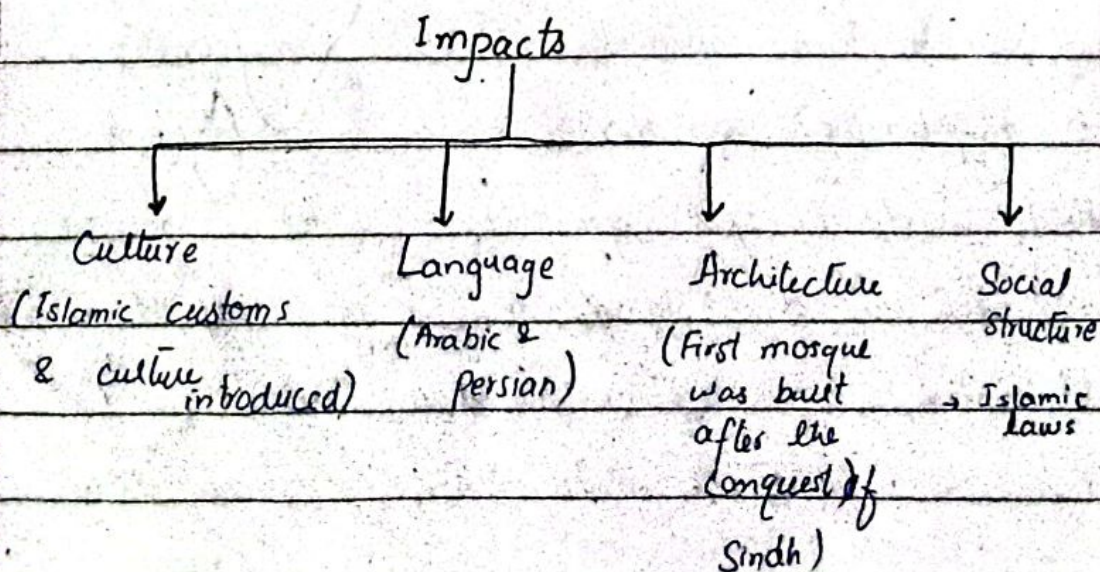 Impacts
Culture
(Islamic customs
& culture
introduced)
Language
(Arabic &
Persian)
Architecture
(First mosque
was built
after the
Conquest of
Sindh)
Social
structure
→ Islamic
laws